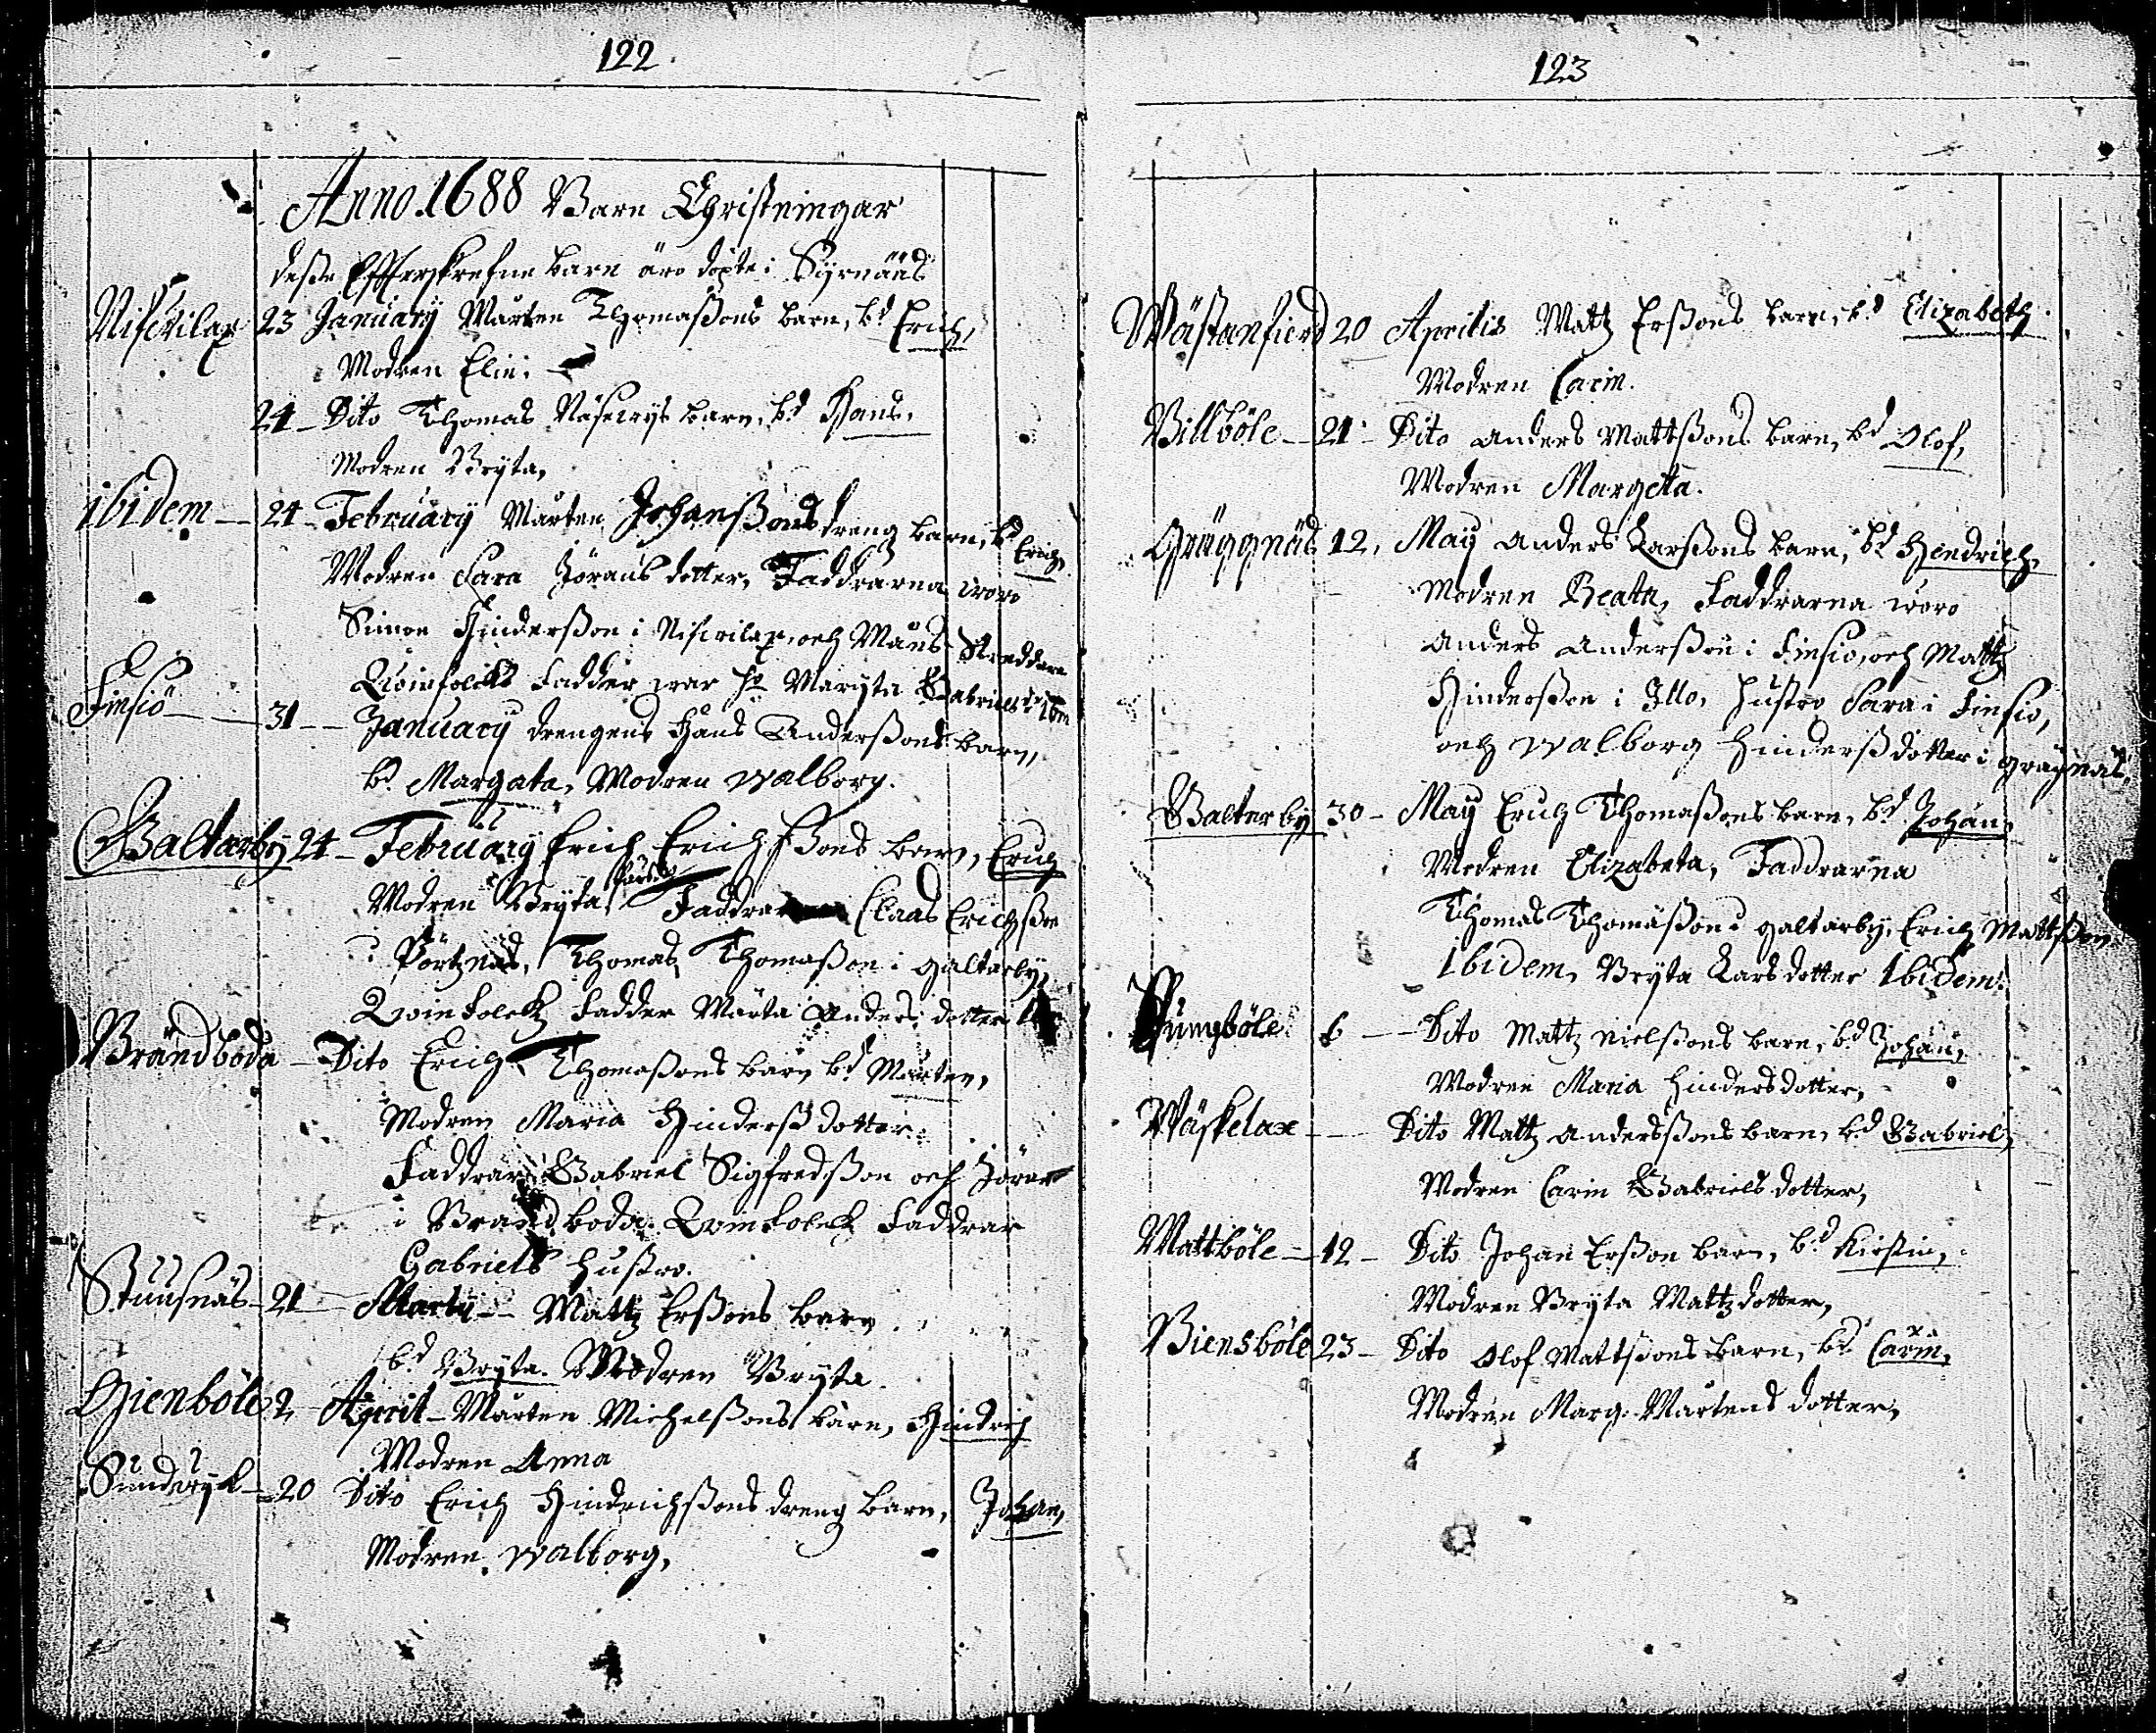 122.
Anno. 1688 Barn Christningar
deße Effterskrefne barn äro döpte i Syrnääs
Nifwilax 23 January Mårten Thomaßons barn, bd Erich,
Modren Elin.
24 - Dito Thomas barn, bd Hans,
Modren Bryta,
ibidem - 24 - February Mårten Johanßons dreng barn, bd Erich,
Modren Sara Jörans dotter, Faddrarna woro
Simon Hinderßon i Nifwilax, och Måns
Qvinfolcks Fadder war Maryta Gabriels
Finsiö - 31 - January drengens Hans Anderßons barn,
bd. Margata, Modren Walborg.
Galtarby 24 - February Erich Erichßons barn, Erich
Modren Bryta, Faddrar Claas Erichßon
i Pörtznäs, Thomas Thomaßon i galtarby,
Qvinfolck Fadder Märta Anders dotter
Brändboda - Dito Erich Thomaßons barn bd Mårten,
Modren Maria Hinderß dotter.
Faddrar Gabriel Sigfredßon och Jöran
i Brändboda. Qvinfolck Faddrar
Gabriels hustro.
Stuusnäs - 21 - Marty - Mattz Erßons barn
bd Bryta. Modren Bryta
Gienböle 2 April - Mårten Michelßons barn, Hindrich
Modren Anna
Sundwyk - 20 Dito Erich Hindrichßons dreng barn, Johan,
Modren Walborg,
123
Wästanfierd 20 Aprilis Mattz Erßons barn, bd Elizabeth.
Modren Carin.
Billböle - 21 - Dito Anders Mattßons barn, bd Olof,
Modren Margeta.
Gräggnäs 12, May Anders Larßons barn, bd Hindrich,
Modren Beata, Faddrarna woro
Anders Anderßon i Finsio, och Mattz
Hinderßon i Illo, hustro Sara i Finsio,
och Walborg Hinderß dotter i gräggnäs,
Galterby 30 - May Erich Thomaßons barn, bd. Johan,
Modren Elizabeta, Faddrarna
Thomas Thomaßon i galtarby, Erich Mattßon
Ibidem, Bryta Lars dotter Ibidem.
Pungböle 6 - Dito Mattz Nielßons barn, bd Johan,
Modren Maria Hinders dotter,
Wäskelax - Dito Mattz Anderßons barn, bd Gabriel,
Modren Carin Gabriels dotter,
Mattböle - 12 - Dito Johan Erßon barn, bd Kirstin,
Modren Bryta Mattz dotter,
Biensböle 23 - Dito Olof Mattßons barn, bd Carin,
Modren Marg. Mårtens dotter,